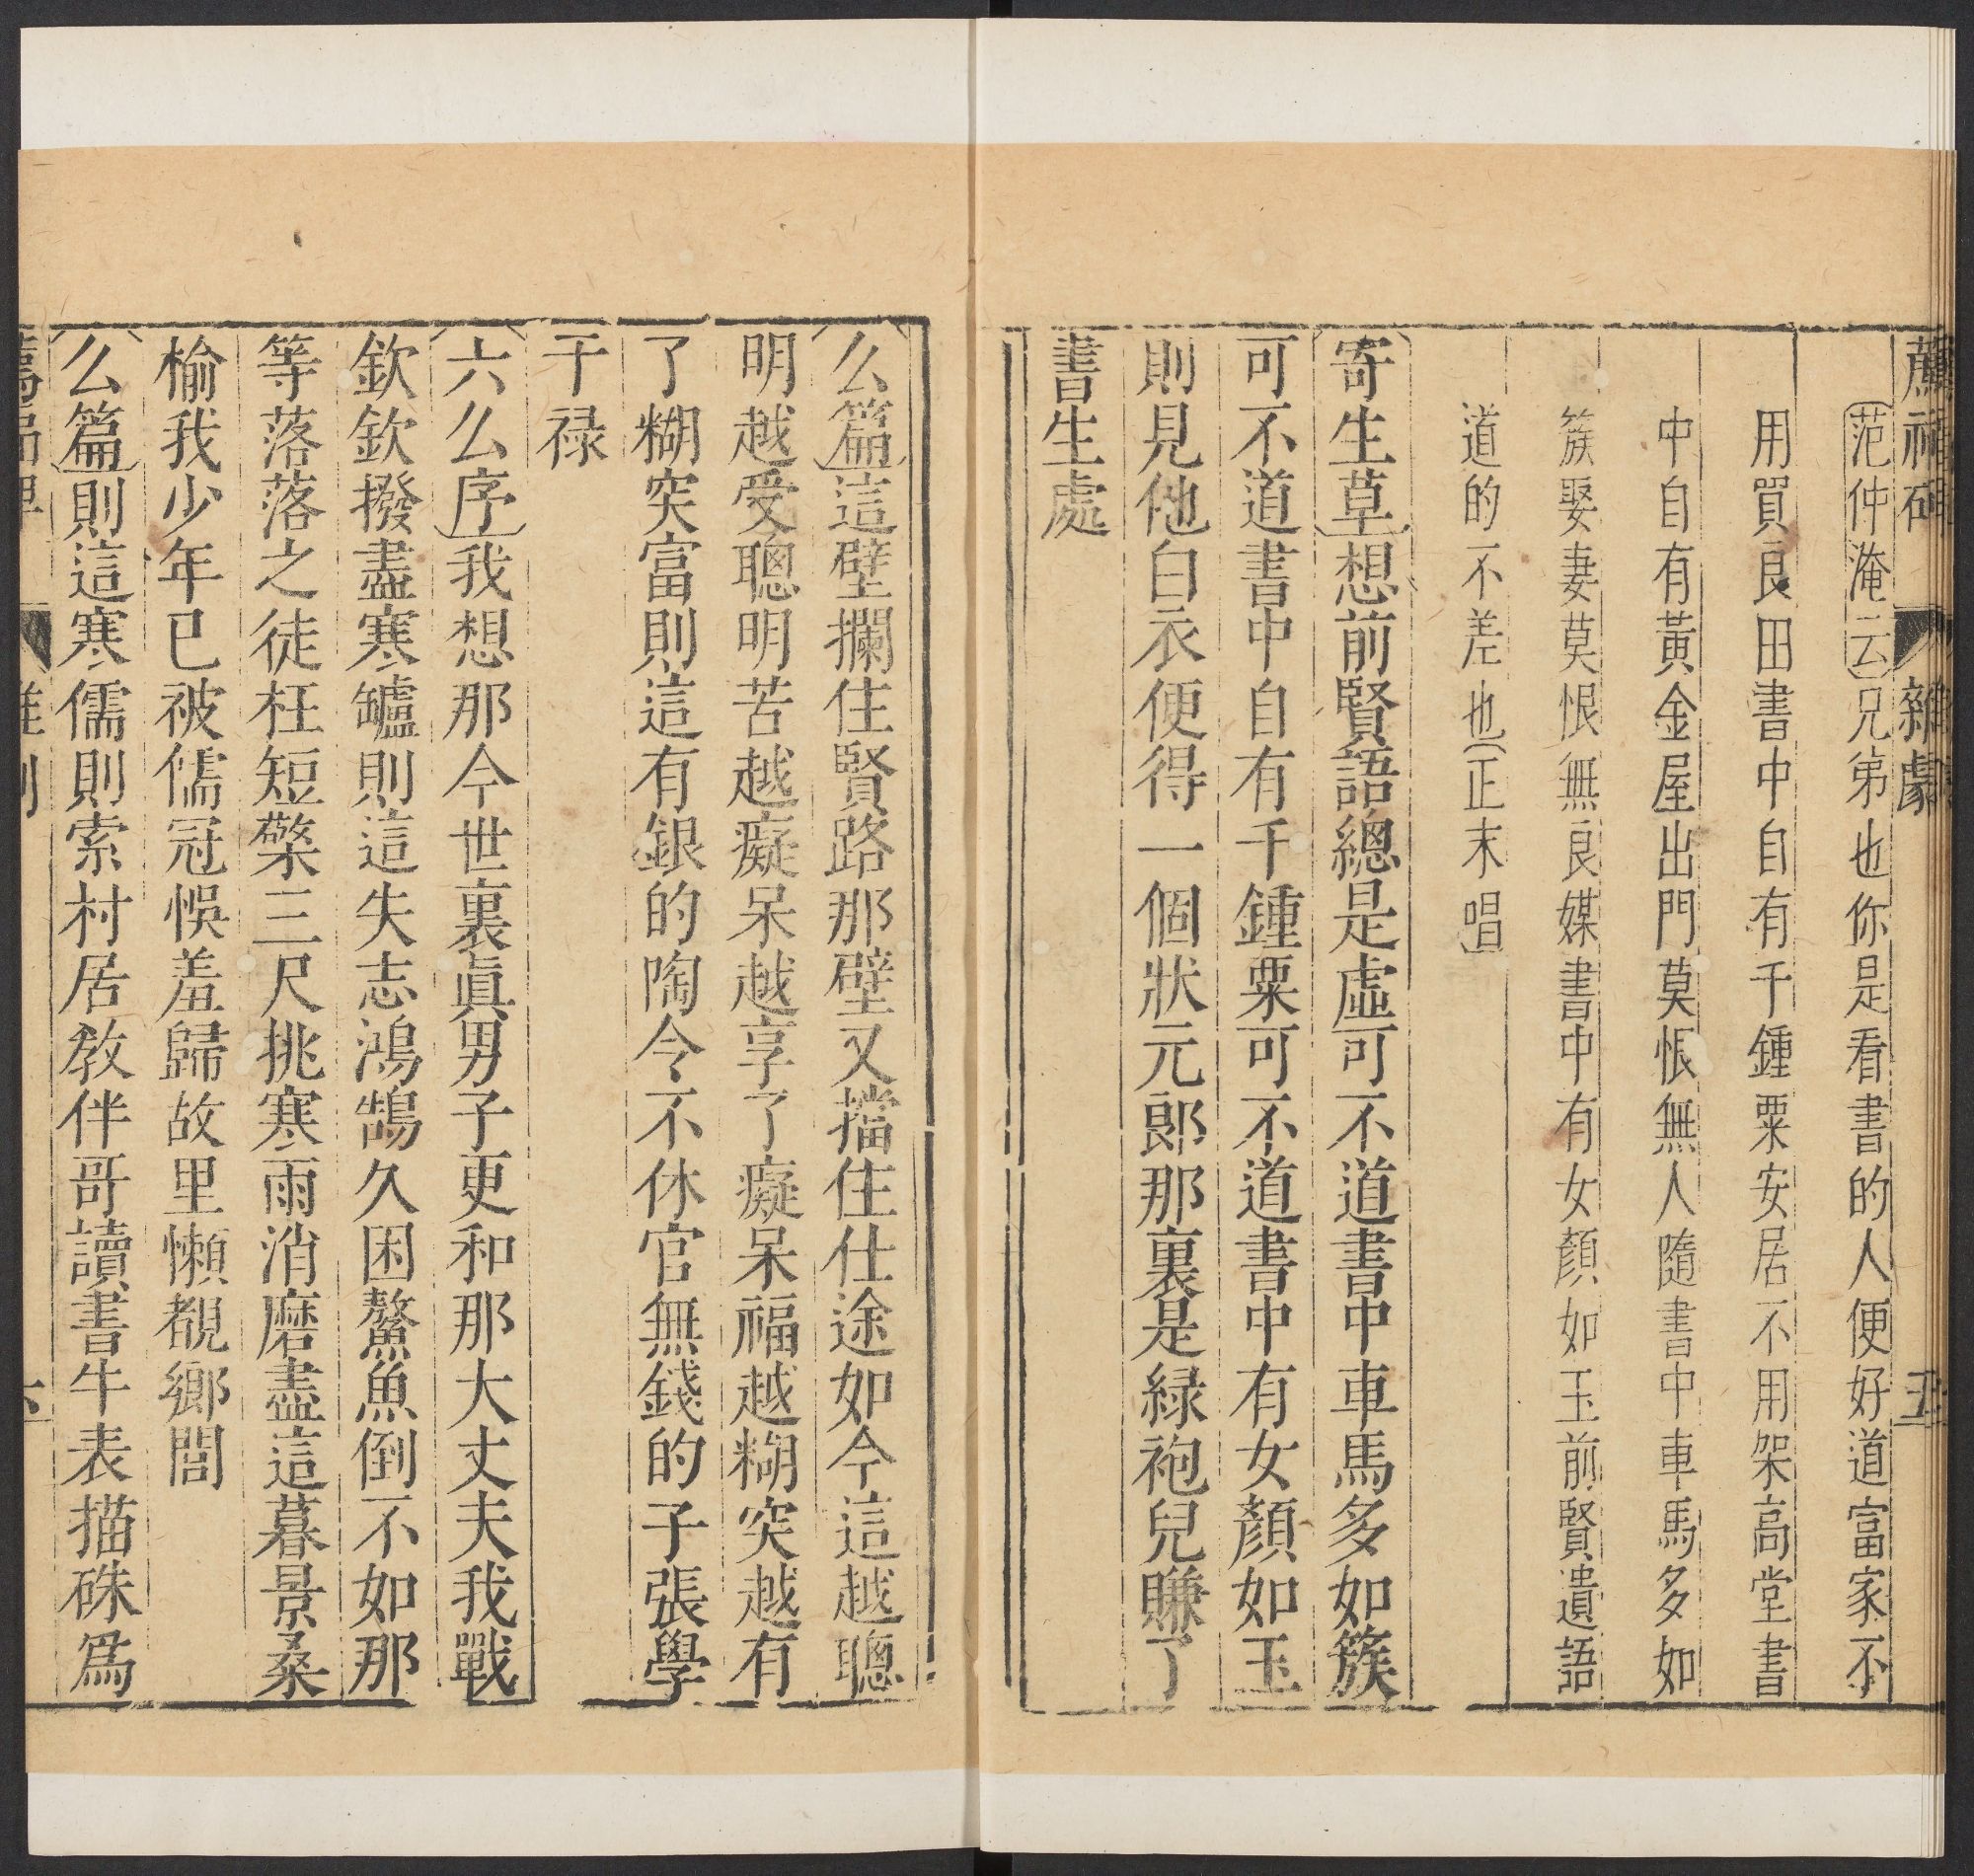 薦福碑 雜劇 五
范仲淹云兄弟也你是看書的人便好道富家不
用買良田書中自有千鍾粟安居不用架高堂書
中自有黃金屋出門莫悵無人隨書中車馬多如
簇娶妻莫恨無良媒書中有女顏如玉前賢遺語
道的不差也(正末唱)
寄生草想前賢語總是虛可不道書中車馬多如簇
可不道書中自有千鍾粟可不道書中有女顏如玉
則見他白衣便得一個狀元郎那裏是緑袍兒賺了
書生處
么篇這壁攔住賢路那壁又擋住仕途如今這越聰
明越受聰明苦越癡呆越享了癡呆福越糊突越有
了糊突富則這有銀的陶令不休官無錢的子張學
干禄
六么序我想那今世裏眞男子更和那大丈夫我戰
欽欽撥盡寒罏則這失志鴻鵠久困鰲魚倒不如那
等落落之徒枉短檠三尺挑寒雨消磨盡這暮景桑
榆我少年已被儒冠悞羞歸故里懶覩鄉閭
么篇則這寒儒則索村居教伴哥讀書牛表描硃爲